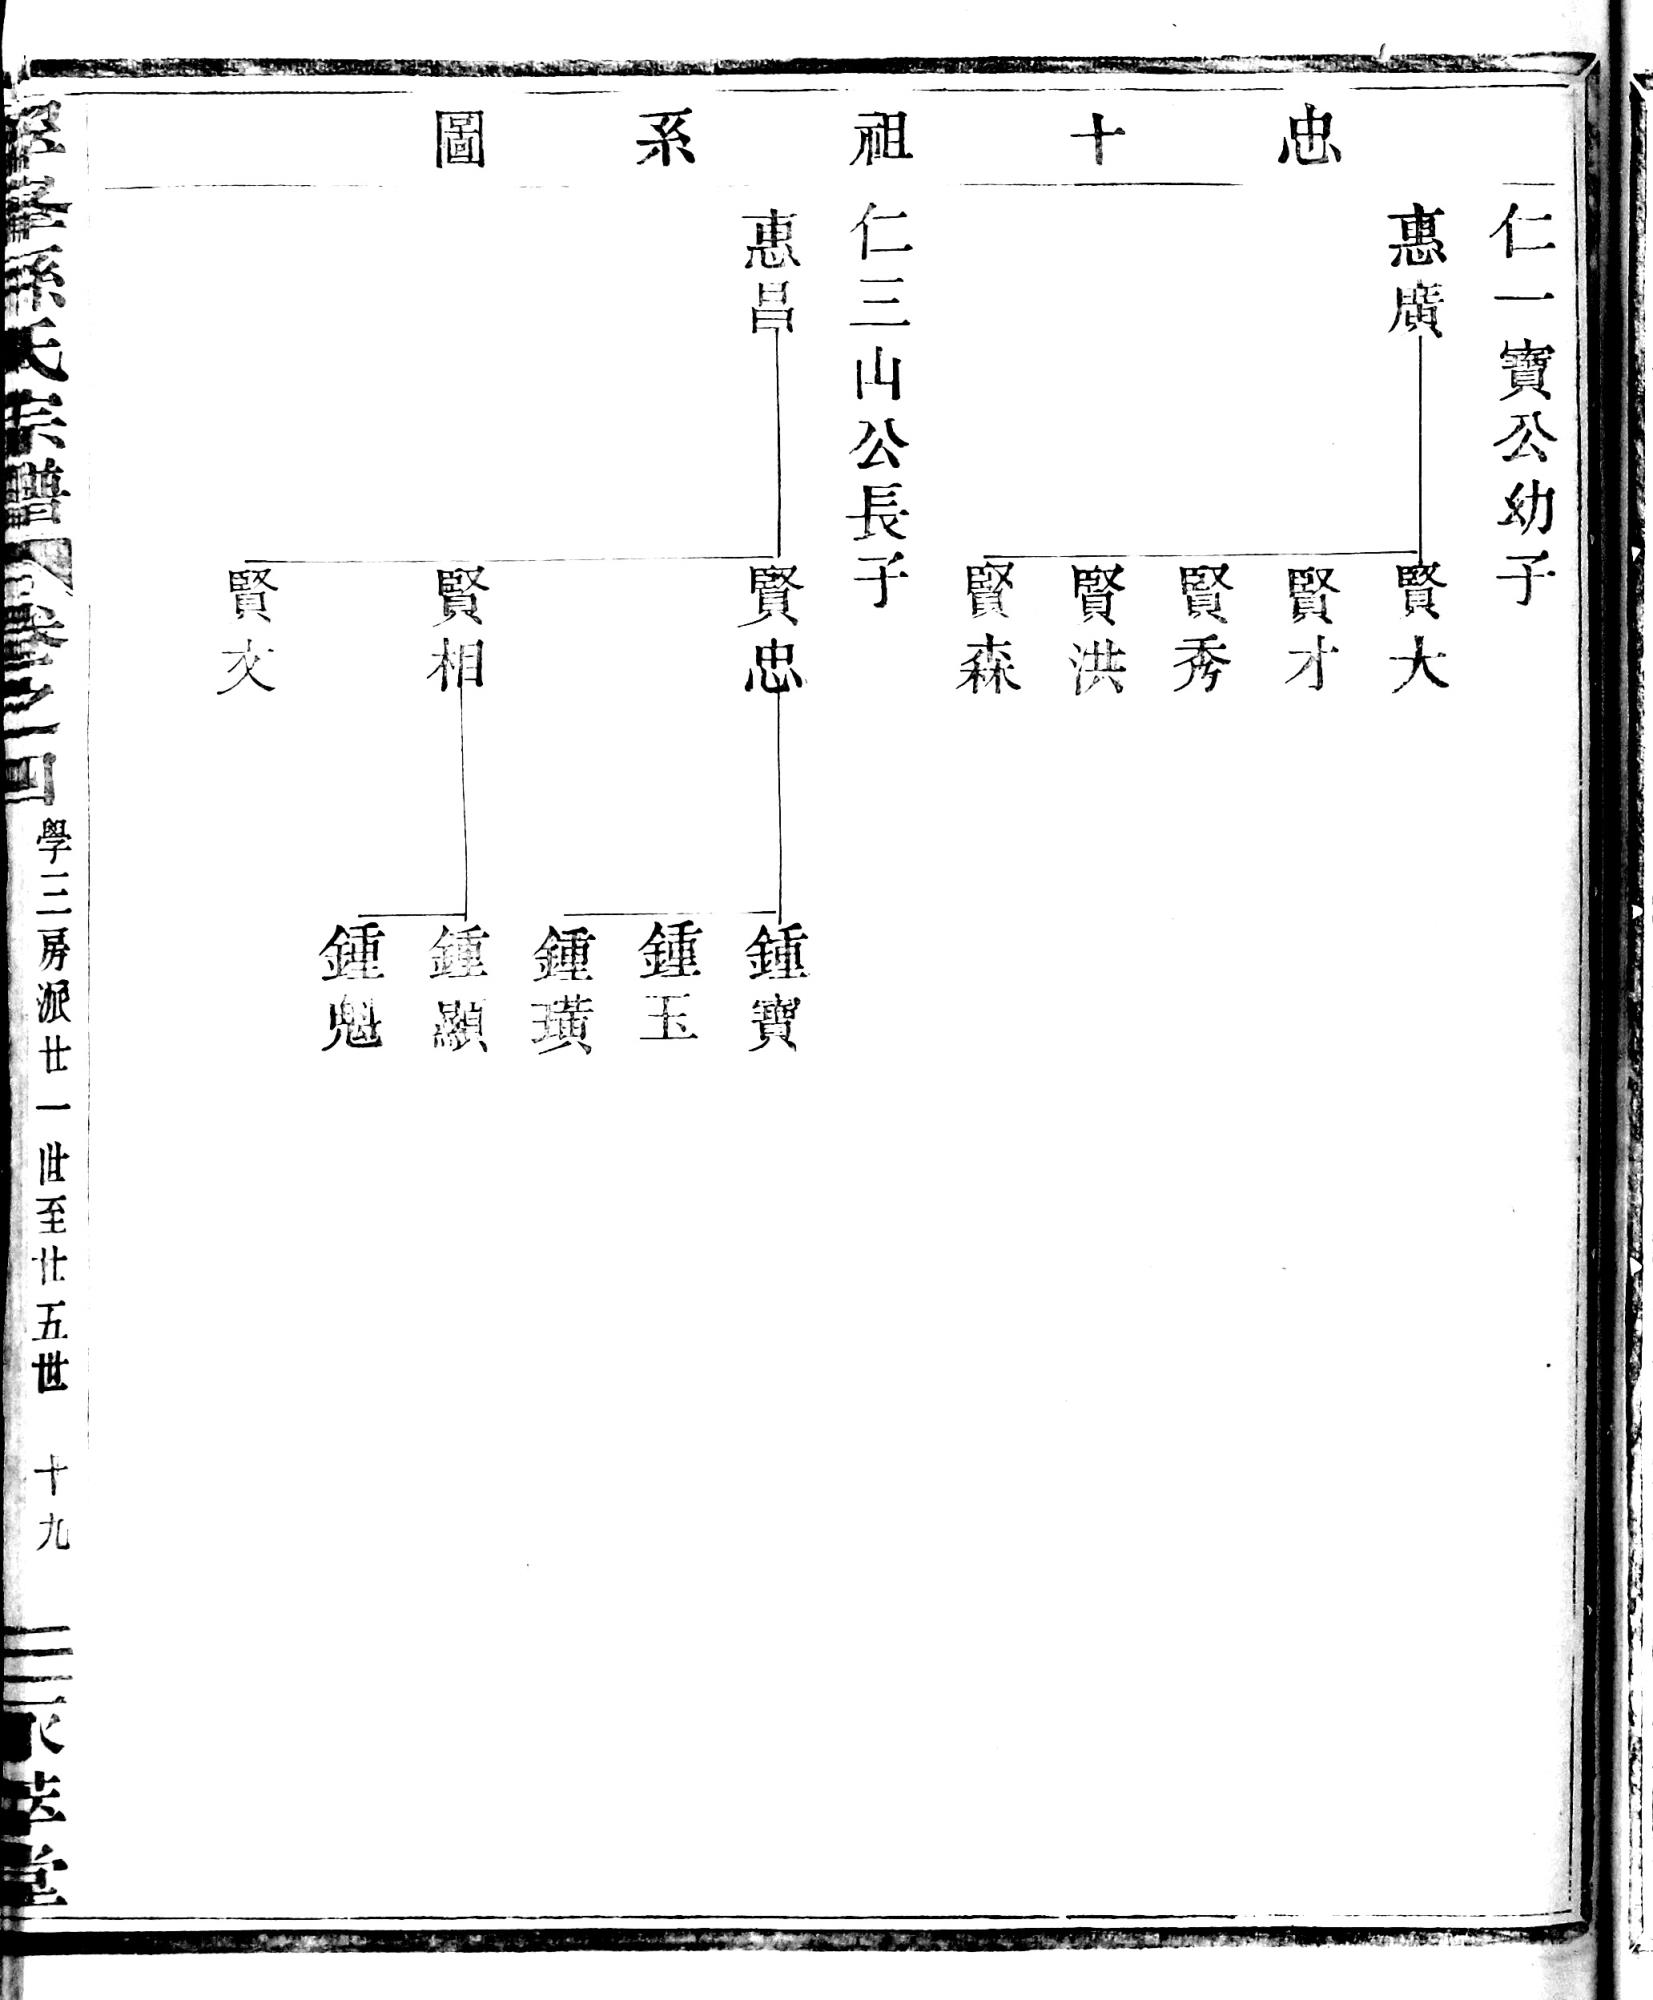 忠十祖系圖
仁一寶公幼子
惠廣
賢大
賢才
賢秀
賢洪
賢森
仁三山公長子
惠昌
賢忠
賢相
賢文
鍾寶
鍾玉
鍾璜
鍾顯
鍾魁
孫氏宗譜 卷之四
學三房派廿一世至廿五世 十九
堂